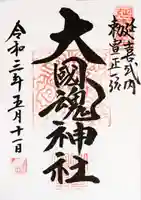 延喜式内
勅宣正一位
大國魂神社
令和三年五月十一日